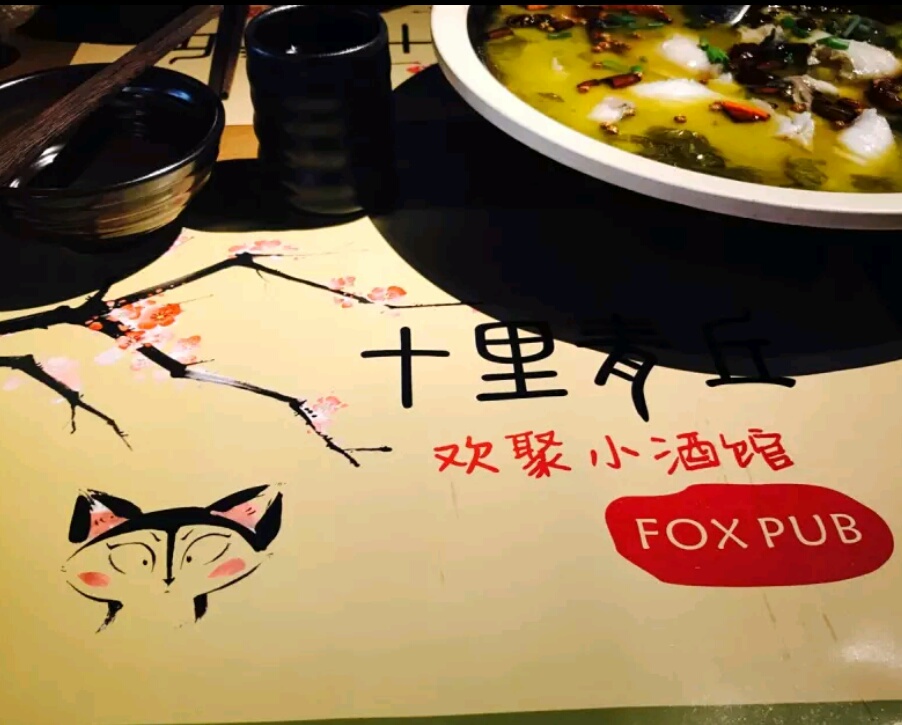 十里青丘
欢聚小酒馆
FOX PUB